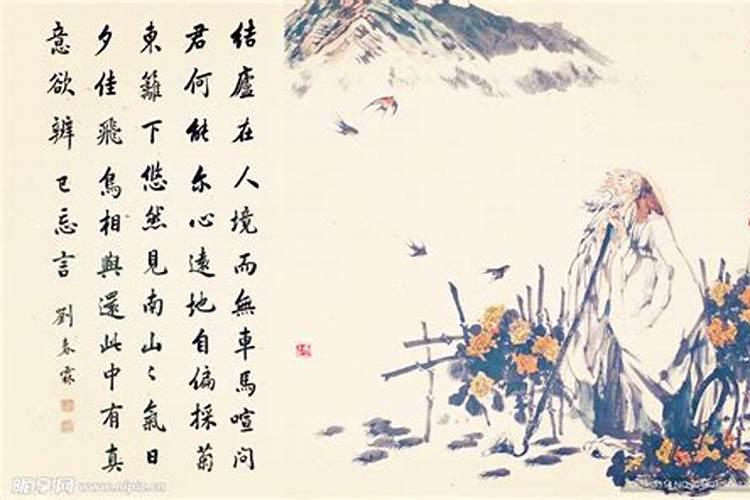 結廬在人境而無車馬喧問
君何能尔心遠地自偏採菊
東籬下悠然見南山〻氣日
夕佳飛鳥相與還此中有真
意欲辨已忘言
劉春霖
昵享网 www.nipic.cn